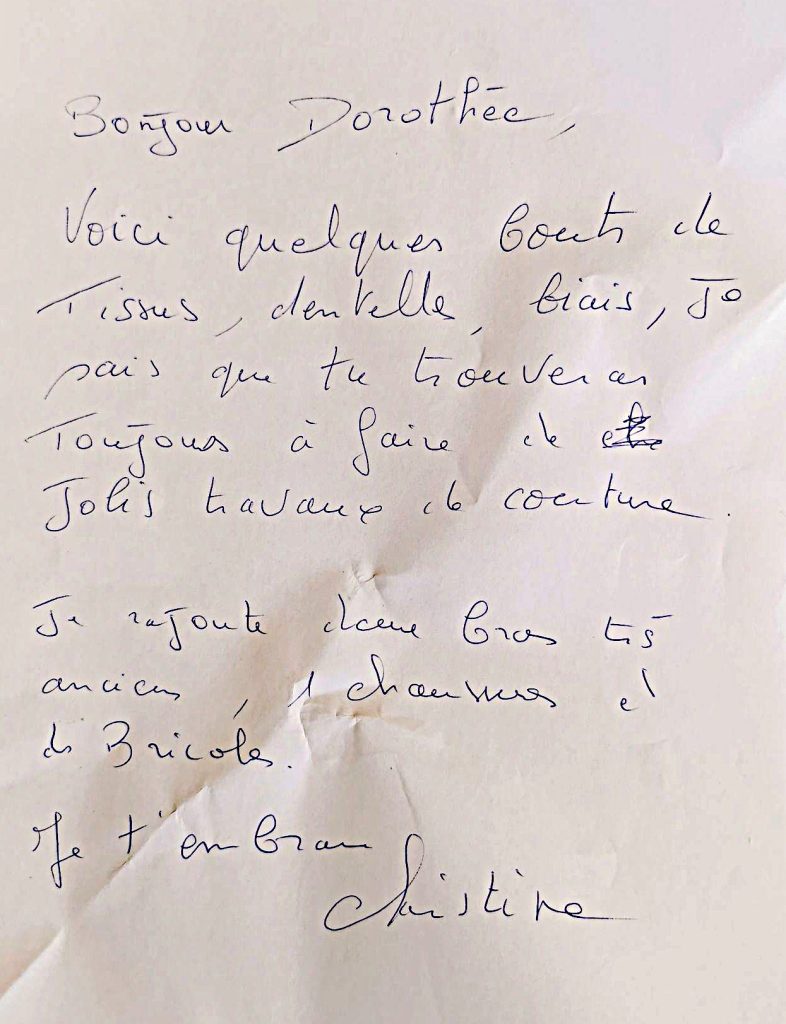 Bonjour Dorothée,
Voici quelques bouts de
Tissus, dentelle, biais, Je
sais que tu trouveras
Toujours à faire de
Jolis travaux de couture.
Je rajoute deux bras très
anciens, 1 chaussures et
ds Bricoles.
Je t'embrasse
Christine